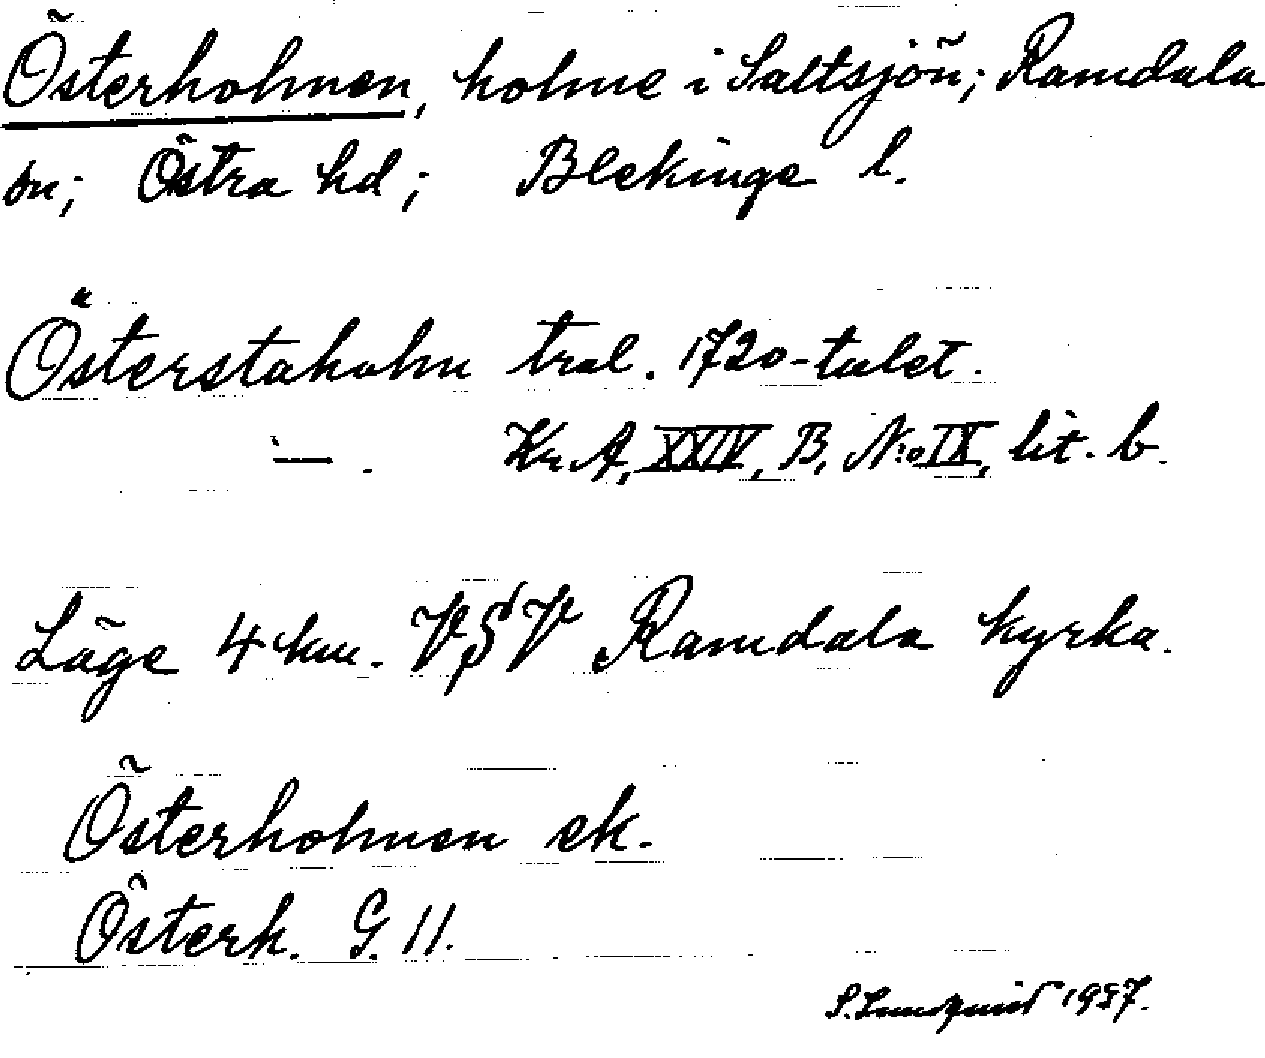 Österholmen, holme i Saltsjön; Ramdala
sn; Östra hd; Blekinge l.
Österstaholm tral. 1720-talet.
— . Kr. A, XXIV, B, No IX, lit. b.
Läge 4 km. VSV Ramdala kyrka.
Österholmen ek.
Österh. G. 11.
S. Lundquist 1937.